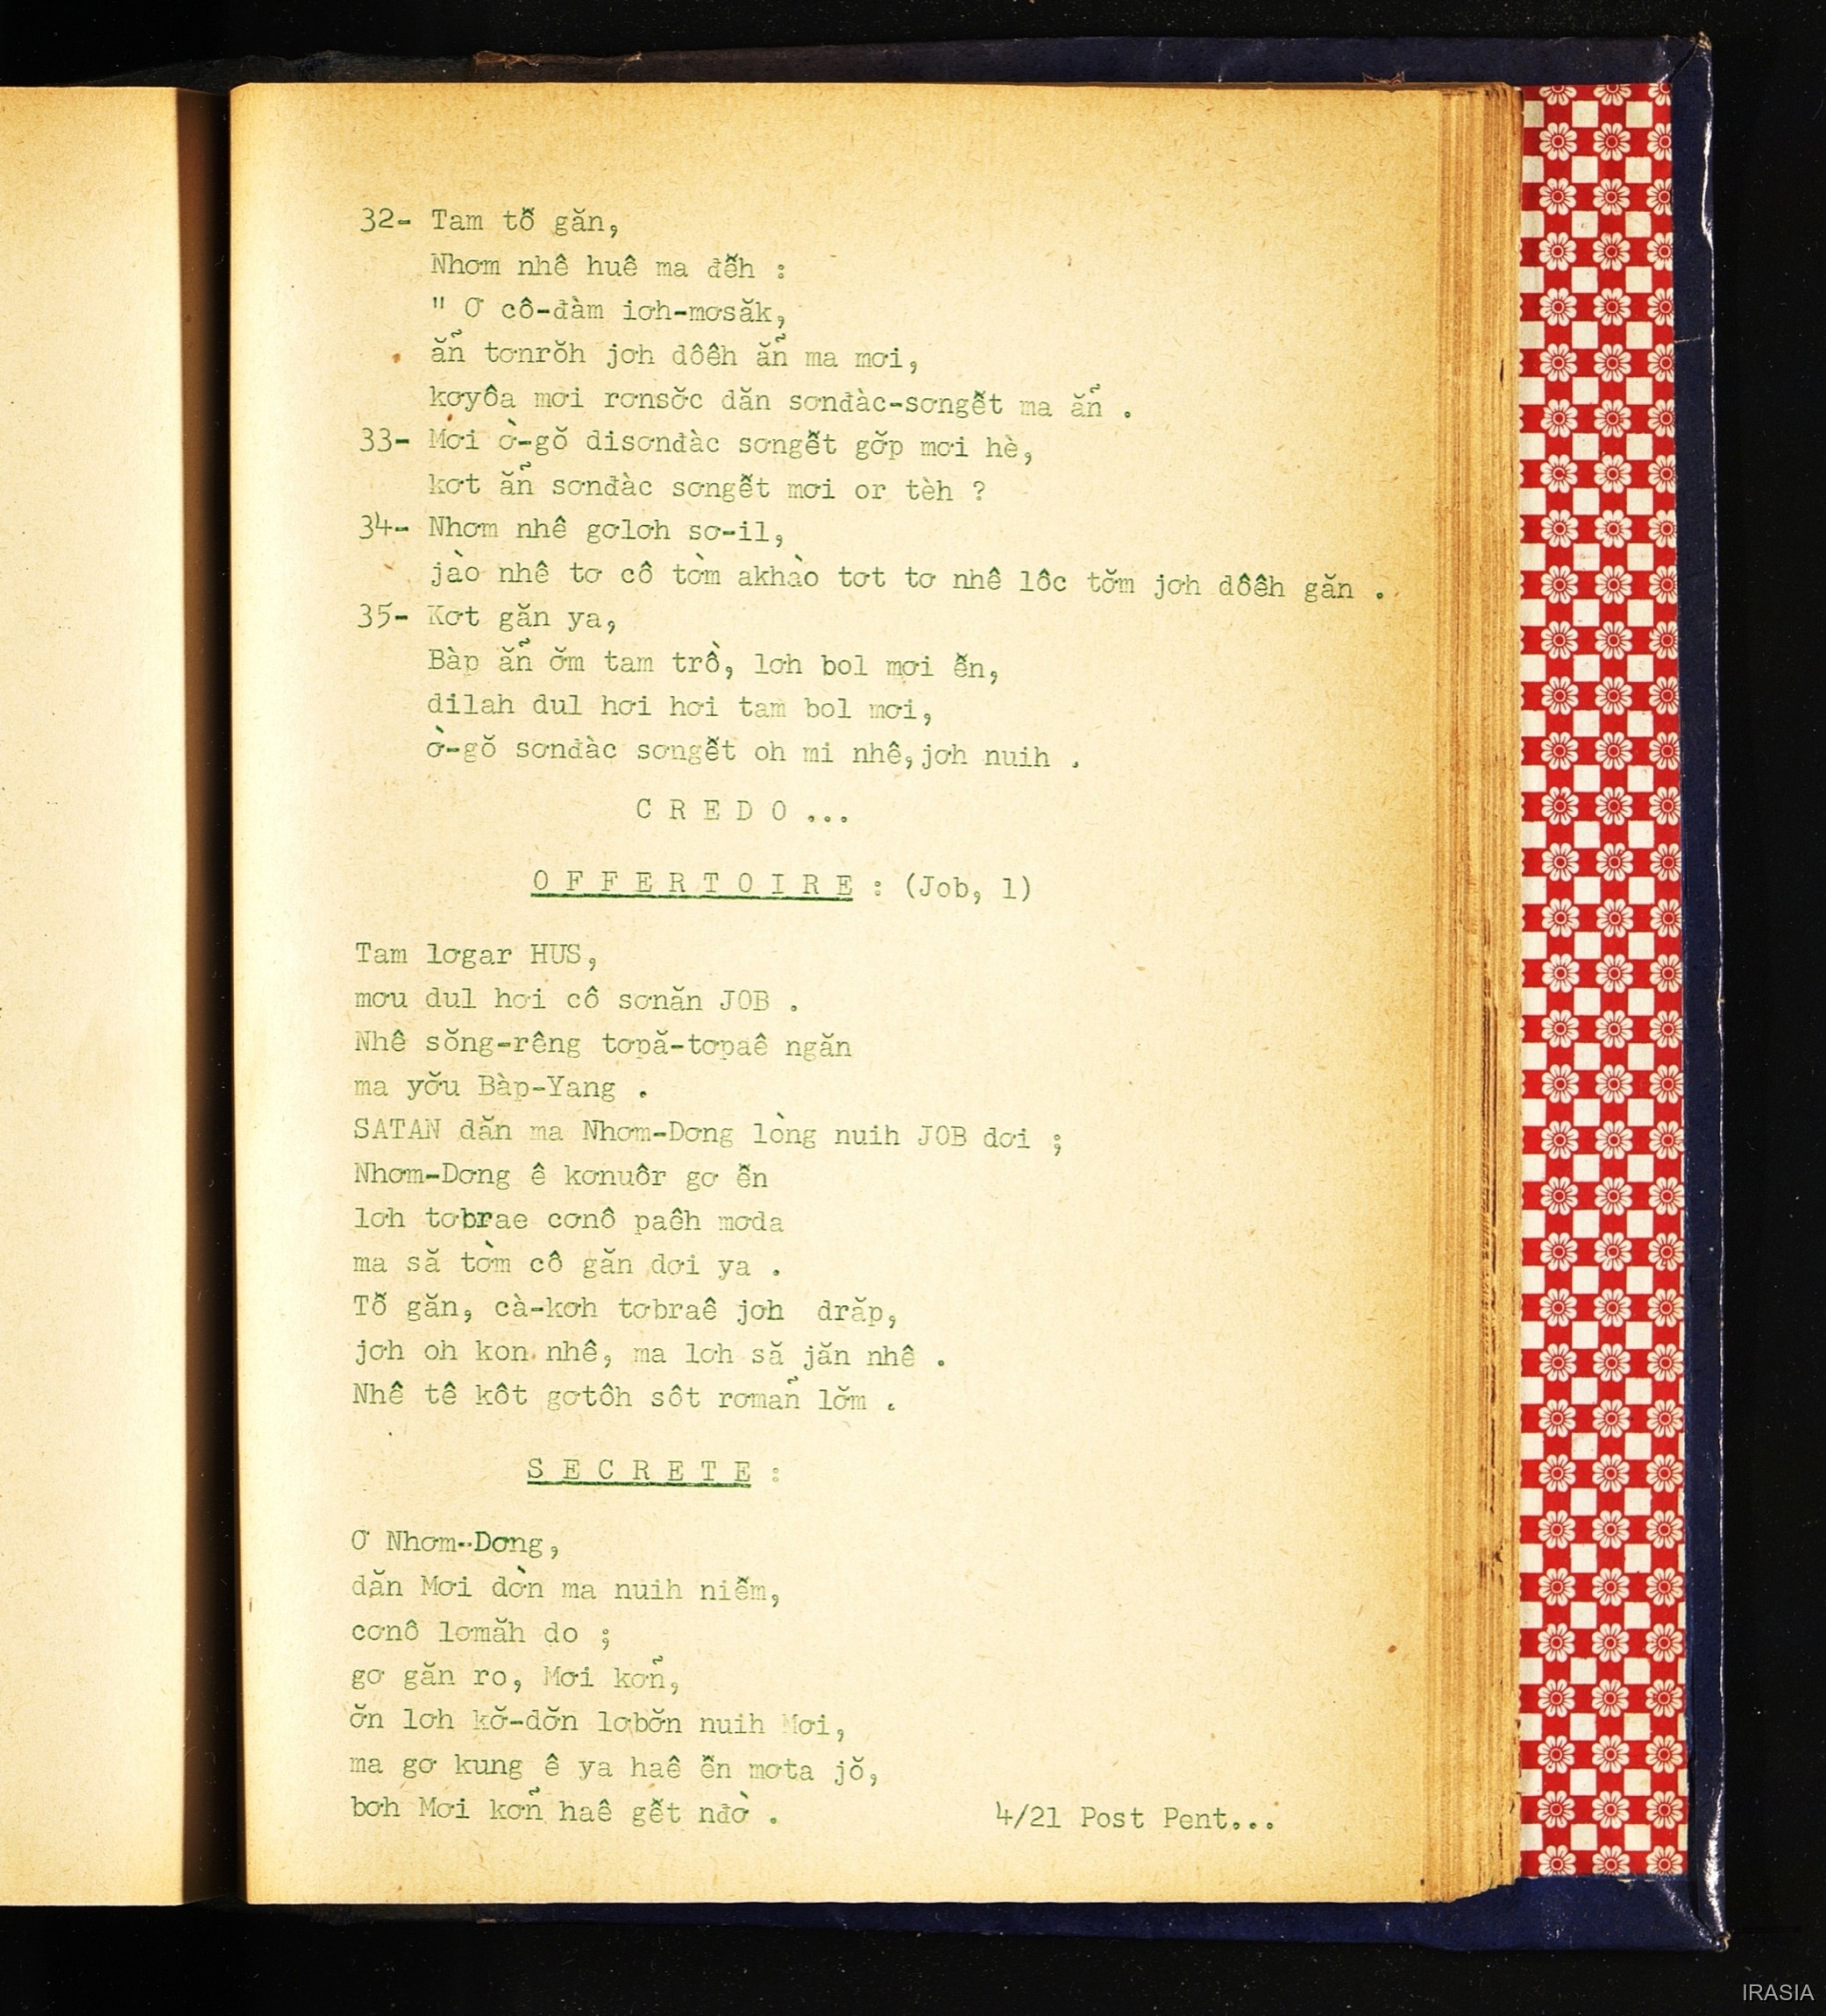 32- Tam tô̆ găn,
Nhơm nhê huê ma đê̆h :
" Ơ cô-đàm iơh-mơsăk,
ăñ tơnrŏh jơh dôêh ăñ ma mơi,
kơyôa mơi rơnsơ̆c dăn sơnđàc-sơngê̆t ma ăñ .
33- Mơi ờ-gŏ disơnđàc sơngê̆t gơ̆p mơi hè,
kơt ăñ sơnđàc sơngê̆t mơi or tèh ?
34- Nhơm nhê gơlơh sơ-il,
jào nhê tơ cô tờm akhào tơt tơ nhê lôc tơ̆m jơh dôêh găn .
35- Kơt găn ya,
Bàp ăñ ơ̆m tam trồ, lơh bol mơi ê̆n,
dilah dul hơi hơi tam bol mơi,
ờ-gŏ sơnđàc sơngê̆t oh mi nhê,jơh nuih .
C R E D O ...
O F F E R T O I R E : (Job, 1)
Tam lơgar HUS,
mơu dul hơi cô sơnăn JOB .
Nhê sŏng-rêng tơpă-tơpaê ngăn
ma yơ̆u Bàp-Yang .
SATAN dăn ma Nhơm-Dơng lòng nuih JOB dơi ;
Nhơm-Dơng ê kơnuôr gơ ê̆n
lơh tơbrae cơnô paêh mơda
ma să tờm cô găn dơi ya .
Tô̆ găn, cà-kơh tơbraê jơh drăp,
jơh oh kon nhê, ma lơh să jăn nhê .
Nhê tê kôt gơtôh sôt rơmañ lơ̆m .
S E C R E T E :
Ơ Nhơm-Dơng,
dăn Mơi dờn ma nuih niê̆m,
cơnô lơmăh do ;
gơ găn ro, Mơi kơñ,
ơ̆n lơh kơ̆-dơ̆n lơbơ̆n nuih Mơi,
ma gơ kung ê ya haê ê̆n mơta jŏ,
bơh Mơi kơñ haê gê̆t nđờ .
4/21 Post Pent...
IRASIA